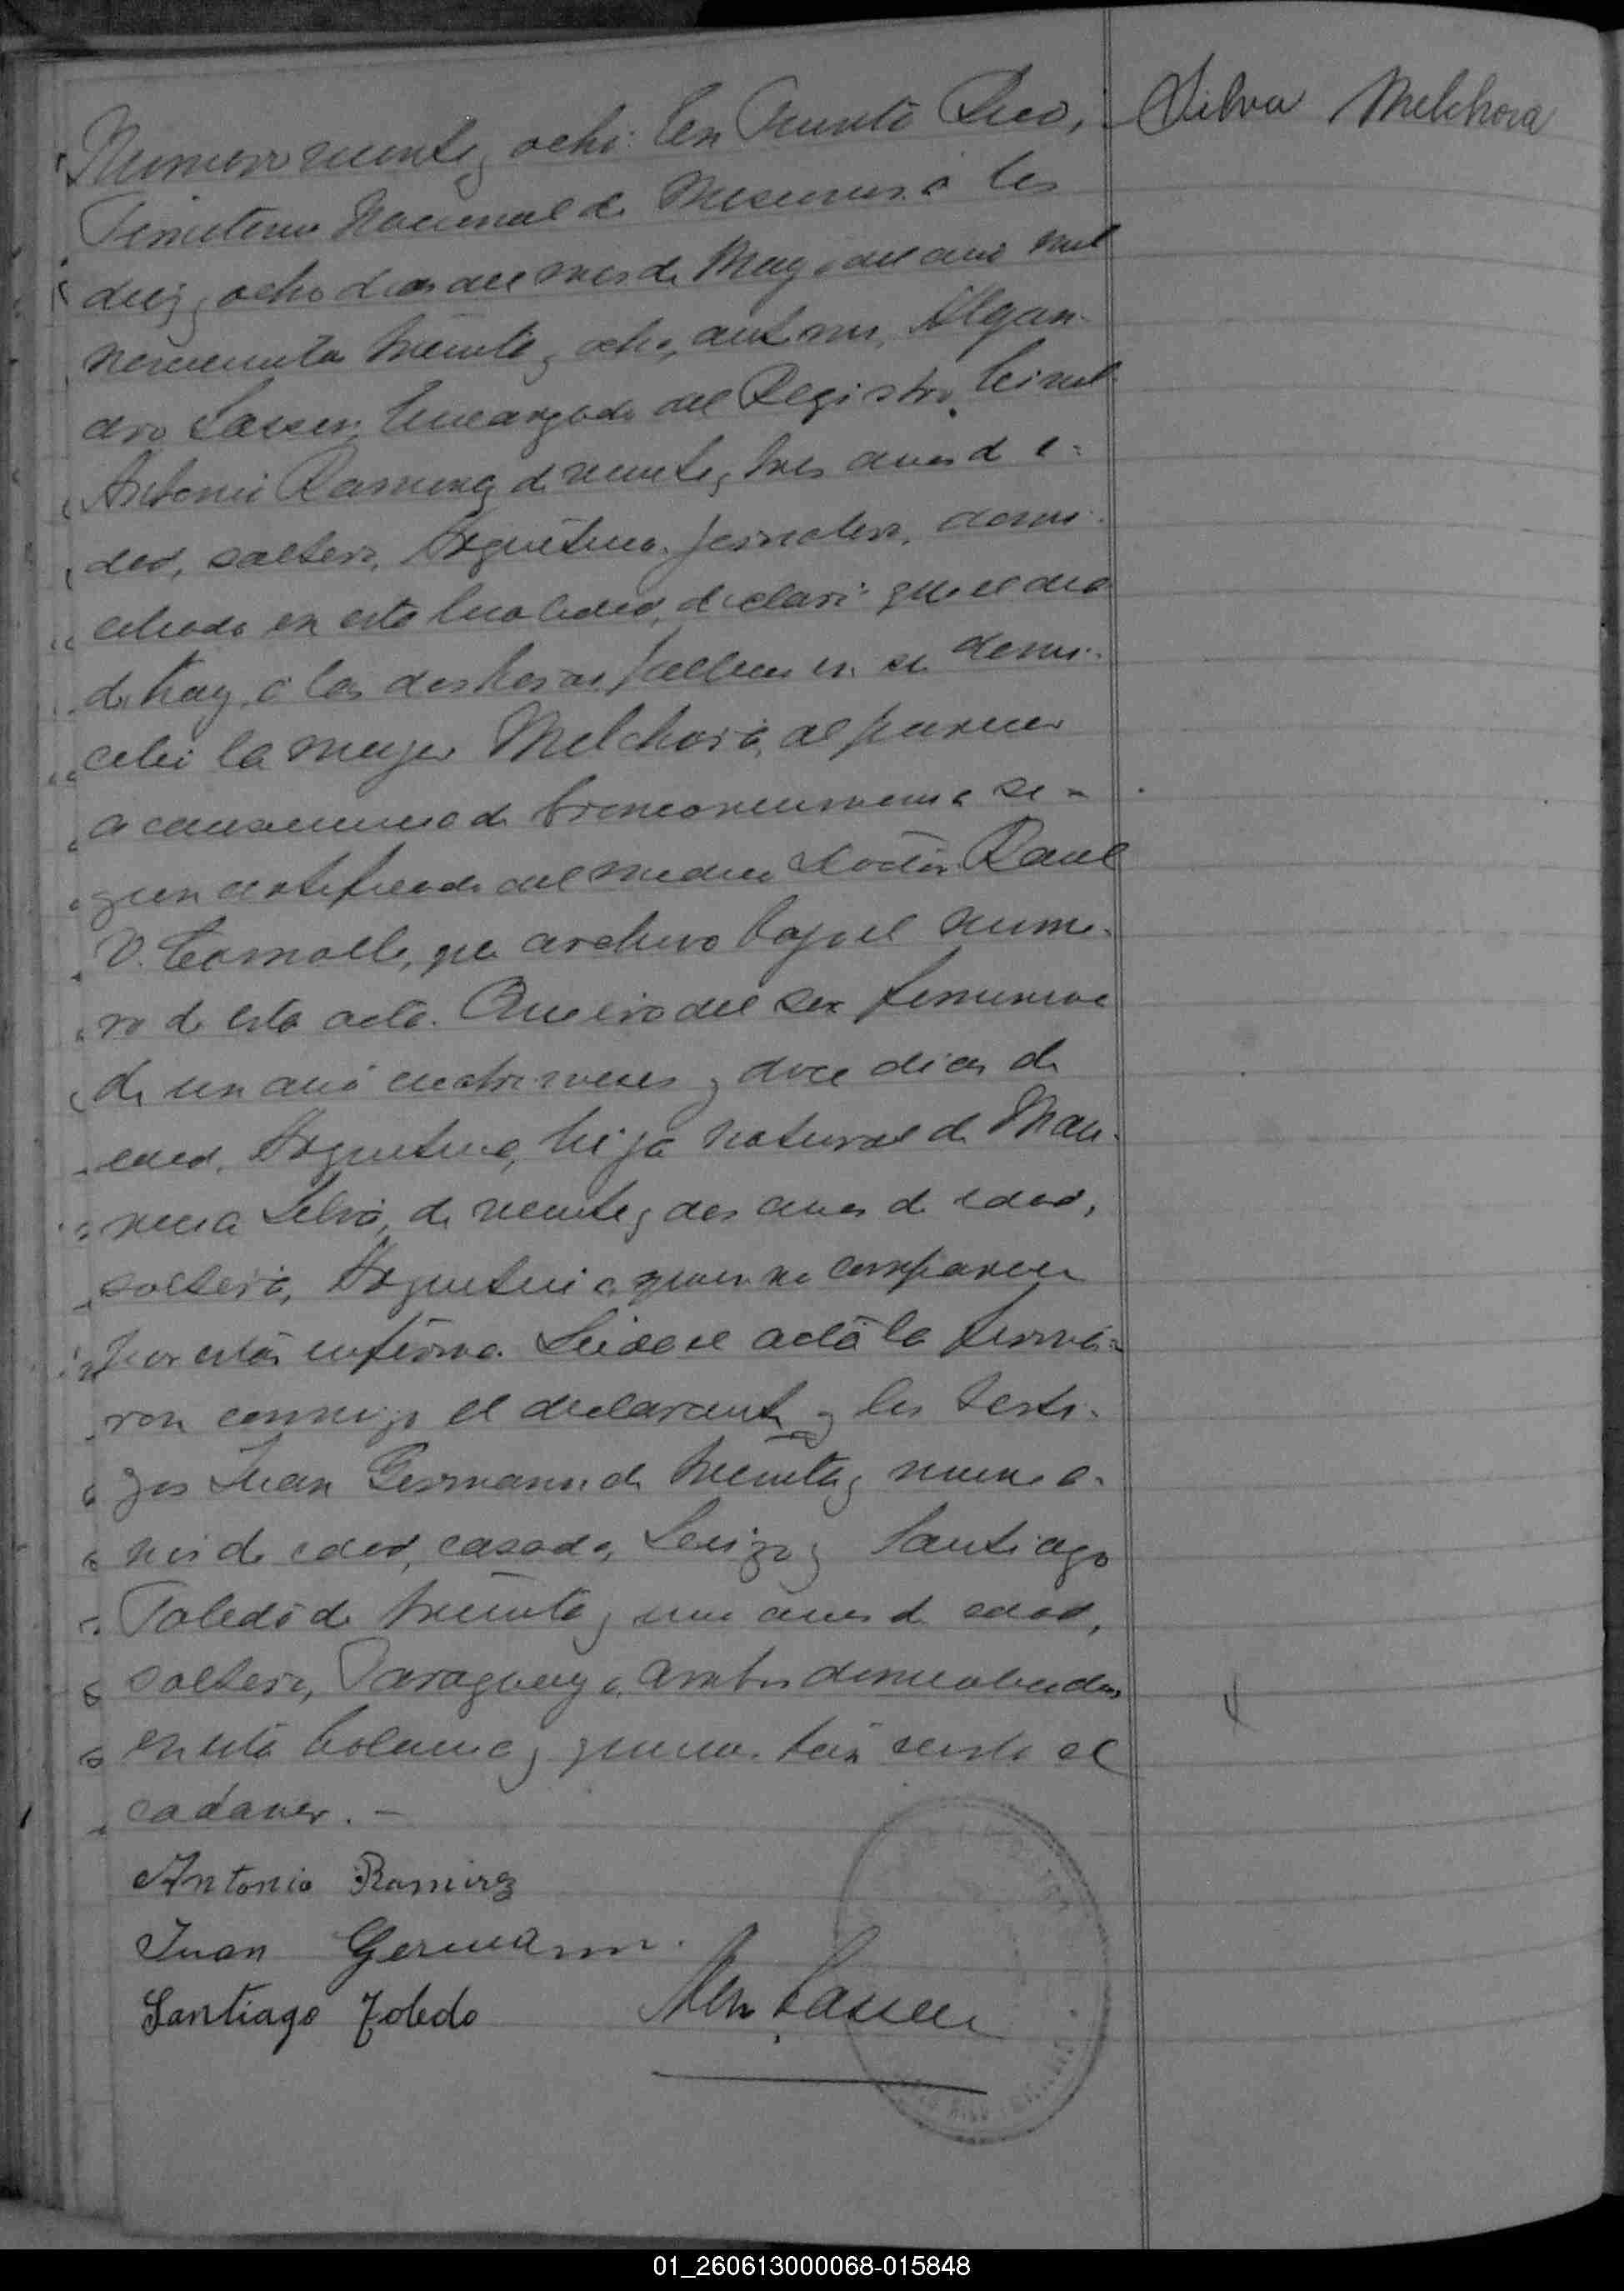 Silva Melchora
Numero veinte y ocho: En Puerto Rico,
Territorio Nacional de Misiones, á los
diez y ocho dias del mes de Mayo del año mil
novecientos treinta y ocho, ante mi, Alejan-
dro Lasser, Encargado del Registro Civil
Antonio Ramirez de veinte y tres años de e-
dad, soltero, Argentino, jornalero, domi-
ciliado en esta localidad, declaró: que el dia
de hoy, á las dos horas, fallecio en su domi-
cilio la mujer Melchora, al parecer
a consecuencia de bronconeumonia se-
gun certificado del medico Doctor Raul
V. que archivo bajo el nume-
ro de esta acta. Que era del sexo femenino
de un año cuatro meses y doce dias de
edad, Argentina, hija natural de
Silva, de veinte y dos años de edad,
soltera, Argentina quien no comparece
por estar enferma. Leida el acta la firma-
ron conmigo el declarante y los testi-
gos Juan Germann de treinta y nueve a-
ños de edad, casado, Suizo y Santiago
Toledo de treinta y un años de edad,
soltero, Paraguayo, ambos domiciliados
en esta Colonia y quienes han visto el
cadaver. -
Antonio Ramirez
Juan Germann.
Santiago Toledo
Alej. Lasser
01_260613000068-015848